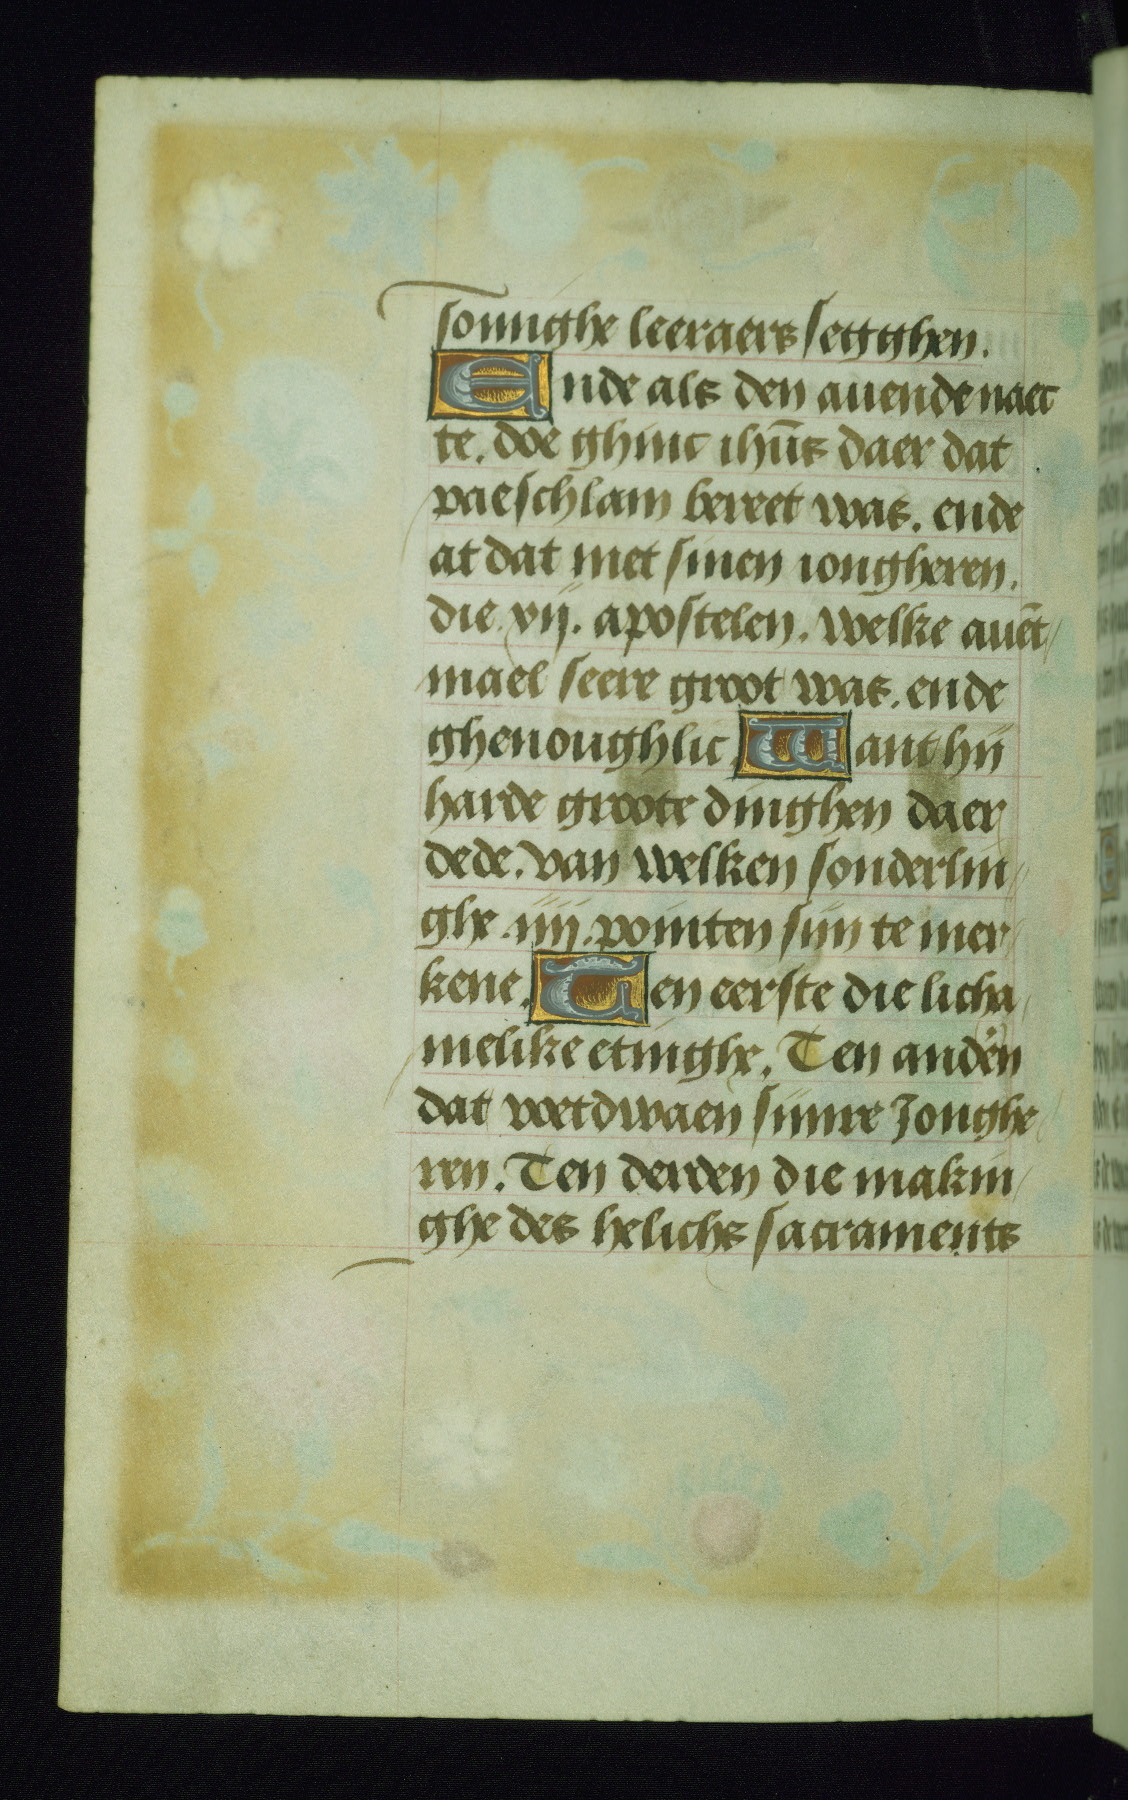 sommighe leeraers segghen.
Ende als den auende naec
te. doe ghinc ihūs daer dat
paeschlam bereet was. ende
at dat met sinen iongheren.
die .xij. apostelen. Welke auēt
mael seere groot was. ende
ghenoughlic. Want hij
harde groote dinghen daer
dede. van welken sonderlin
ghe .iiij. pointen sijn te mer
kene. Ten eerste die licha
melike etinghe. Ten andēn
dat voetdwaen sijnre Jonghe
ren. Ten derden die makin
ghe des helichs sacraments